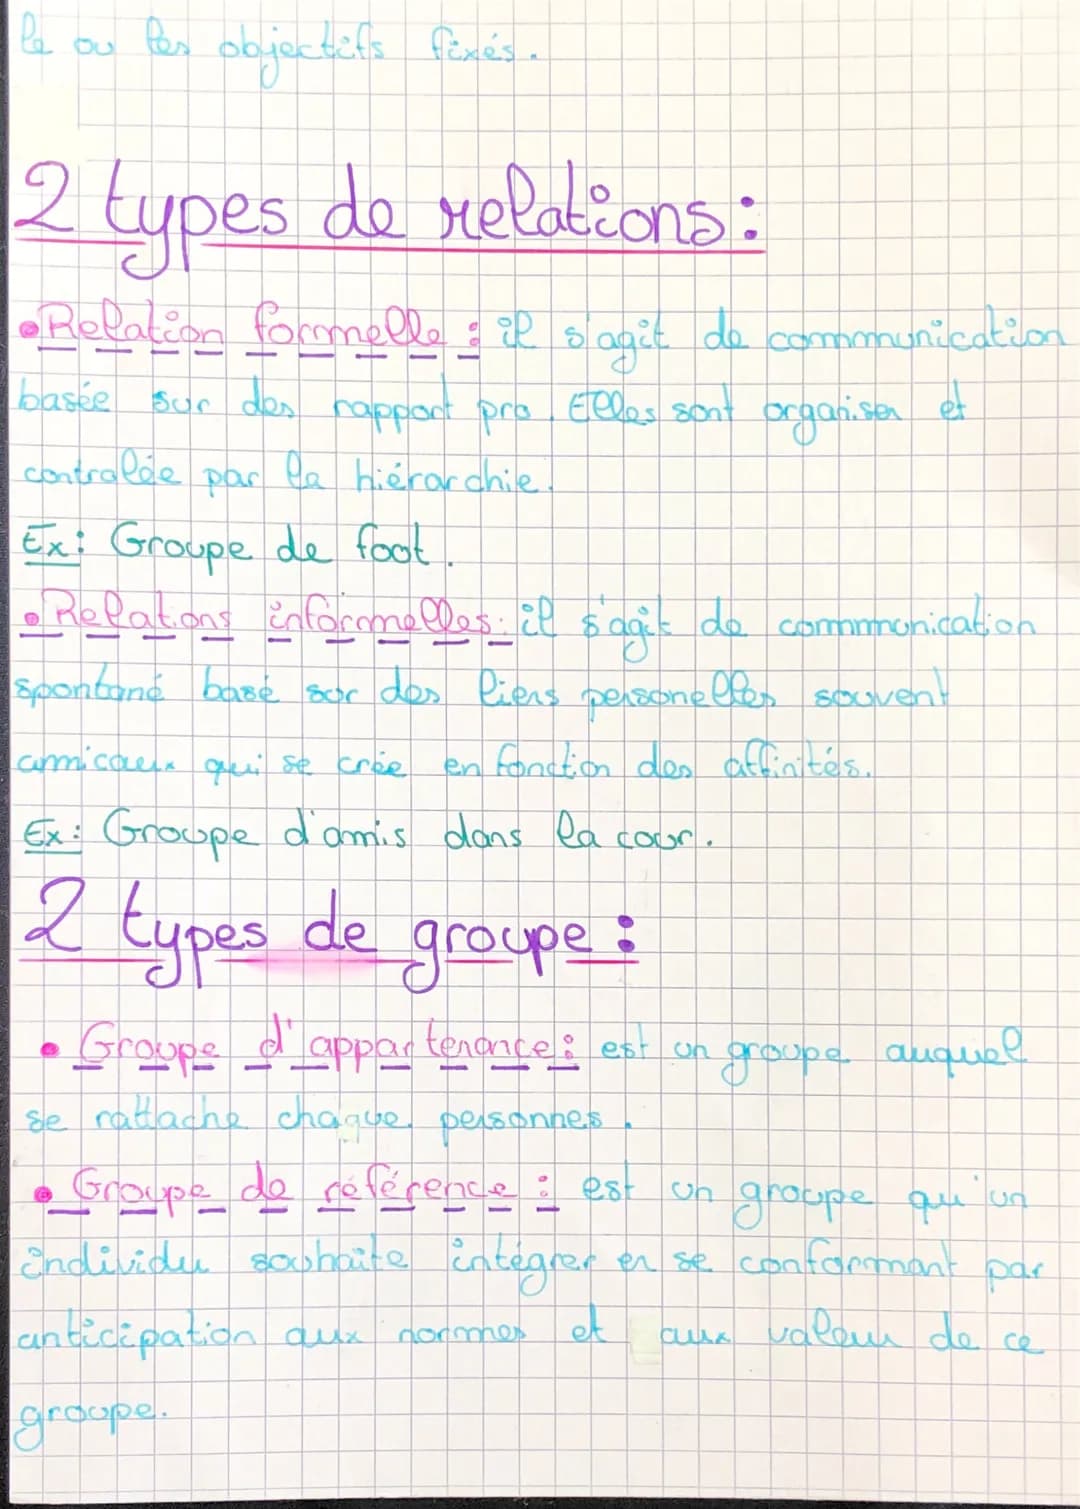 le ou les objectifs fixés.
2 types de relations :
• Relation formelle : il s'agit de communication
basée sur des rapport pro. Elles sont organiser et
contrôlée par la hiérarchie.
Ex : Groupe de foot.
• Relations informelles : il s'agit de communication
spontané basé sur des liens personelles souvent
amicaux qui se crée en fonction des affinités.
Ex : Groupe d'amis dans la cour.
2 types de groupe :
• Groupe d'appartenance : est un groupe auquel
se rattache chaque personnes.
• Groupe de référence : est un groupe qu'un
individu souhaite intégrer en se conformant par
anticipation aux normes et aux valeur de ce
groupe.